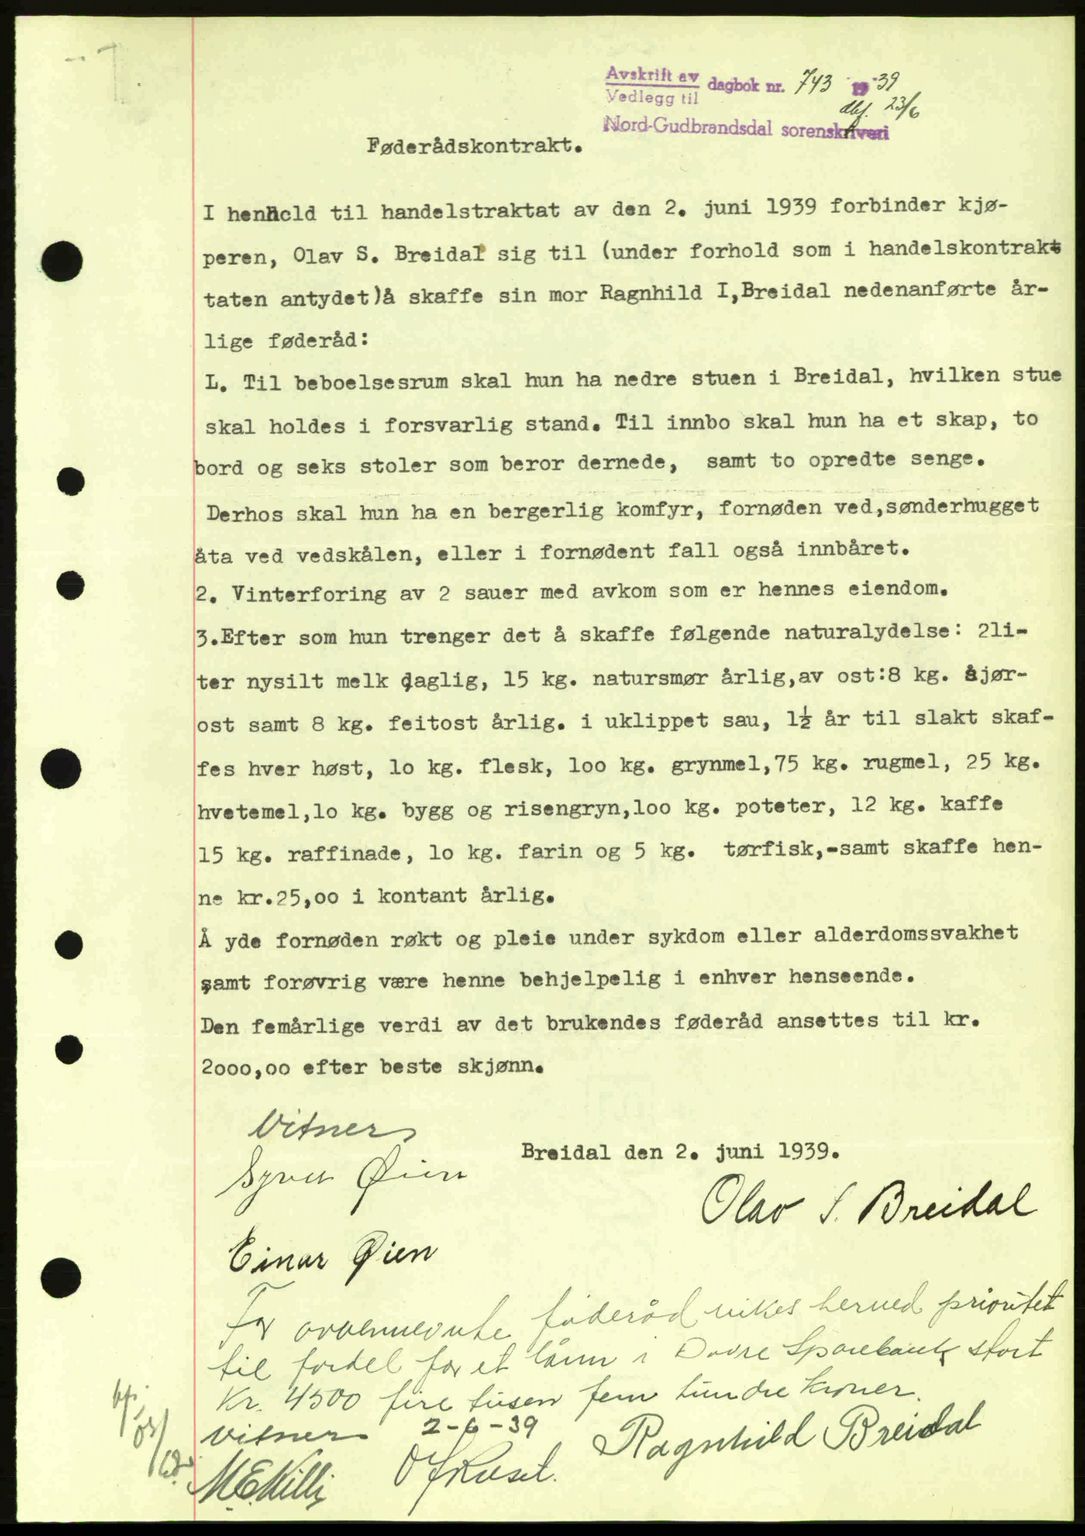 Avskrift av
Vedlegg til
dagbok nr. 743 1939
dbf. 23/6
Nord-Gudbrandsdal sorenskriveri
Føderådskontrakt.
I henhold til handelstraktat av den 2. juni 1939 forbinder kjø-
peren, Olav S. Breidal sig til (under forhold som i handelskontrakt
taten antydet)å skaffe sin mor Ragnhild I,Breidal nedenanførte år-
lige føderåd:
L. Til beboelsesrum skal hun ha nedre stuen i Breidal, hvilken stue
skal holdes i forsvarlig stand. Til innbo skal hun ha et skap, to
bord og seks stoler som beror dernede, samt to opredte senge.
Derhos skal hun ha en bergerlig komfyr, fornøden ved,sønderhugget
åta ved vedskålen, eller i fornødent fall også innbåret.
2. Vinterforing av 2 sauer med avkom som er hennes eiendom.
3.Efter som hun trenger det å skaffe følgende naturalydelse: 2li-
ter nysilt melk daglig, 15 kg. natursmør årlig,av ost:8 kg. åjør-
ost samt 8 kg. feitost årlig. i uklippet sau, 1½ år til slakt skaf-
fes hver høst, lo kg. flesk, loo kg. grynmel,75 kg. rugmel, 25 kg.
hvetemel,lo kg. bygg og risengryn,loo kg. poteter, 12 kg. kaffe
15 kg. raffinade, lo kg. farin og 5 kg. tørfisk,-samt skaffe hen-
ne kr.25,oo i kontant årlig.
Å yde fornøden røkt og pleie under sykdom eller alderdomssvakhet
samt forøvrig være henne behjelpelig i enhver henseende.
Den femårlige verdi av det brukendes føderåd ansettes til kr.
2ooo,oo efter beste skjønn.
Vitner
Breidal den 2. juni 1939.
Syver Øien
Olav S. Breidal
Einar Øien
For ovennevnte føderåd vikes herved prioritet
til fordel for et lånn i Dovre Sparebank stort
Kr. 4500 fire tusen fem hundre kroner.
Vitner 2-6-39
Ragnhild Breidal
M.E.Killi